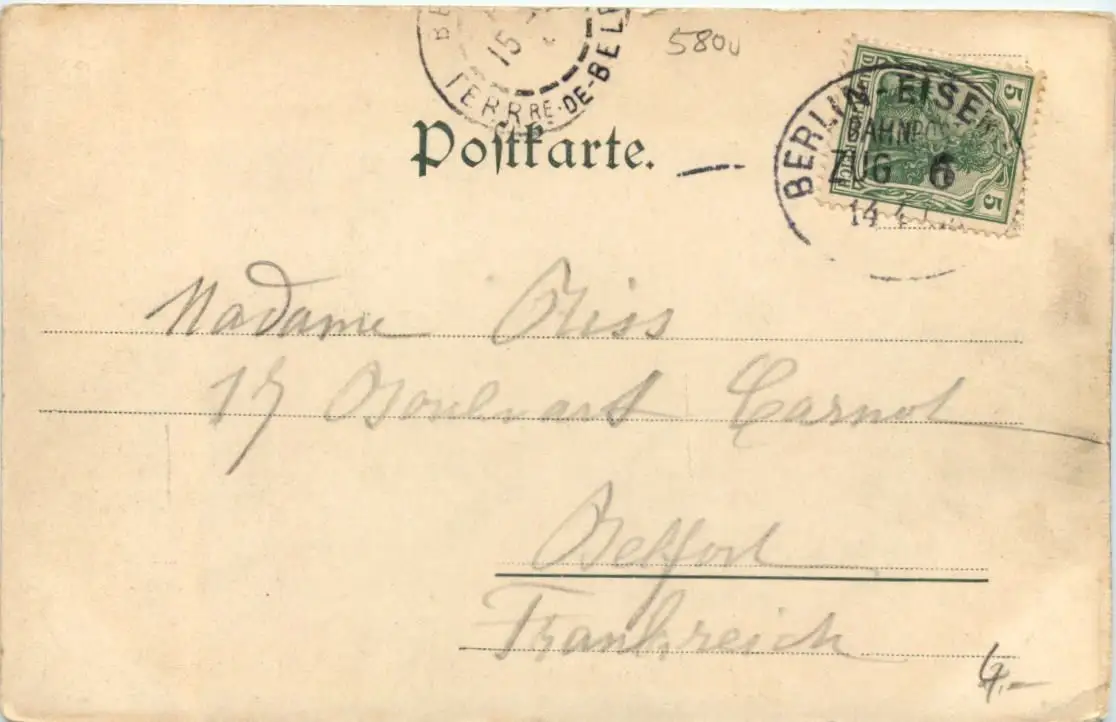 15
TERRRE-DE-BEL
580
Postkarte.
BERLIN - EISE
BAHNPO
ZUG 6
14 4
5
5
Madame Riss
17 Boulevart Carnot
Belfort
Frankreich
4.-